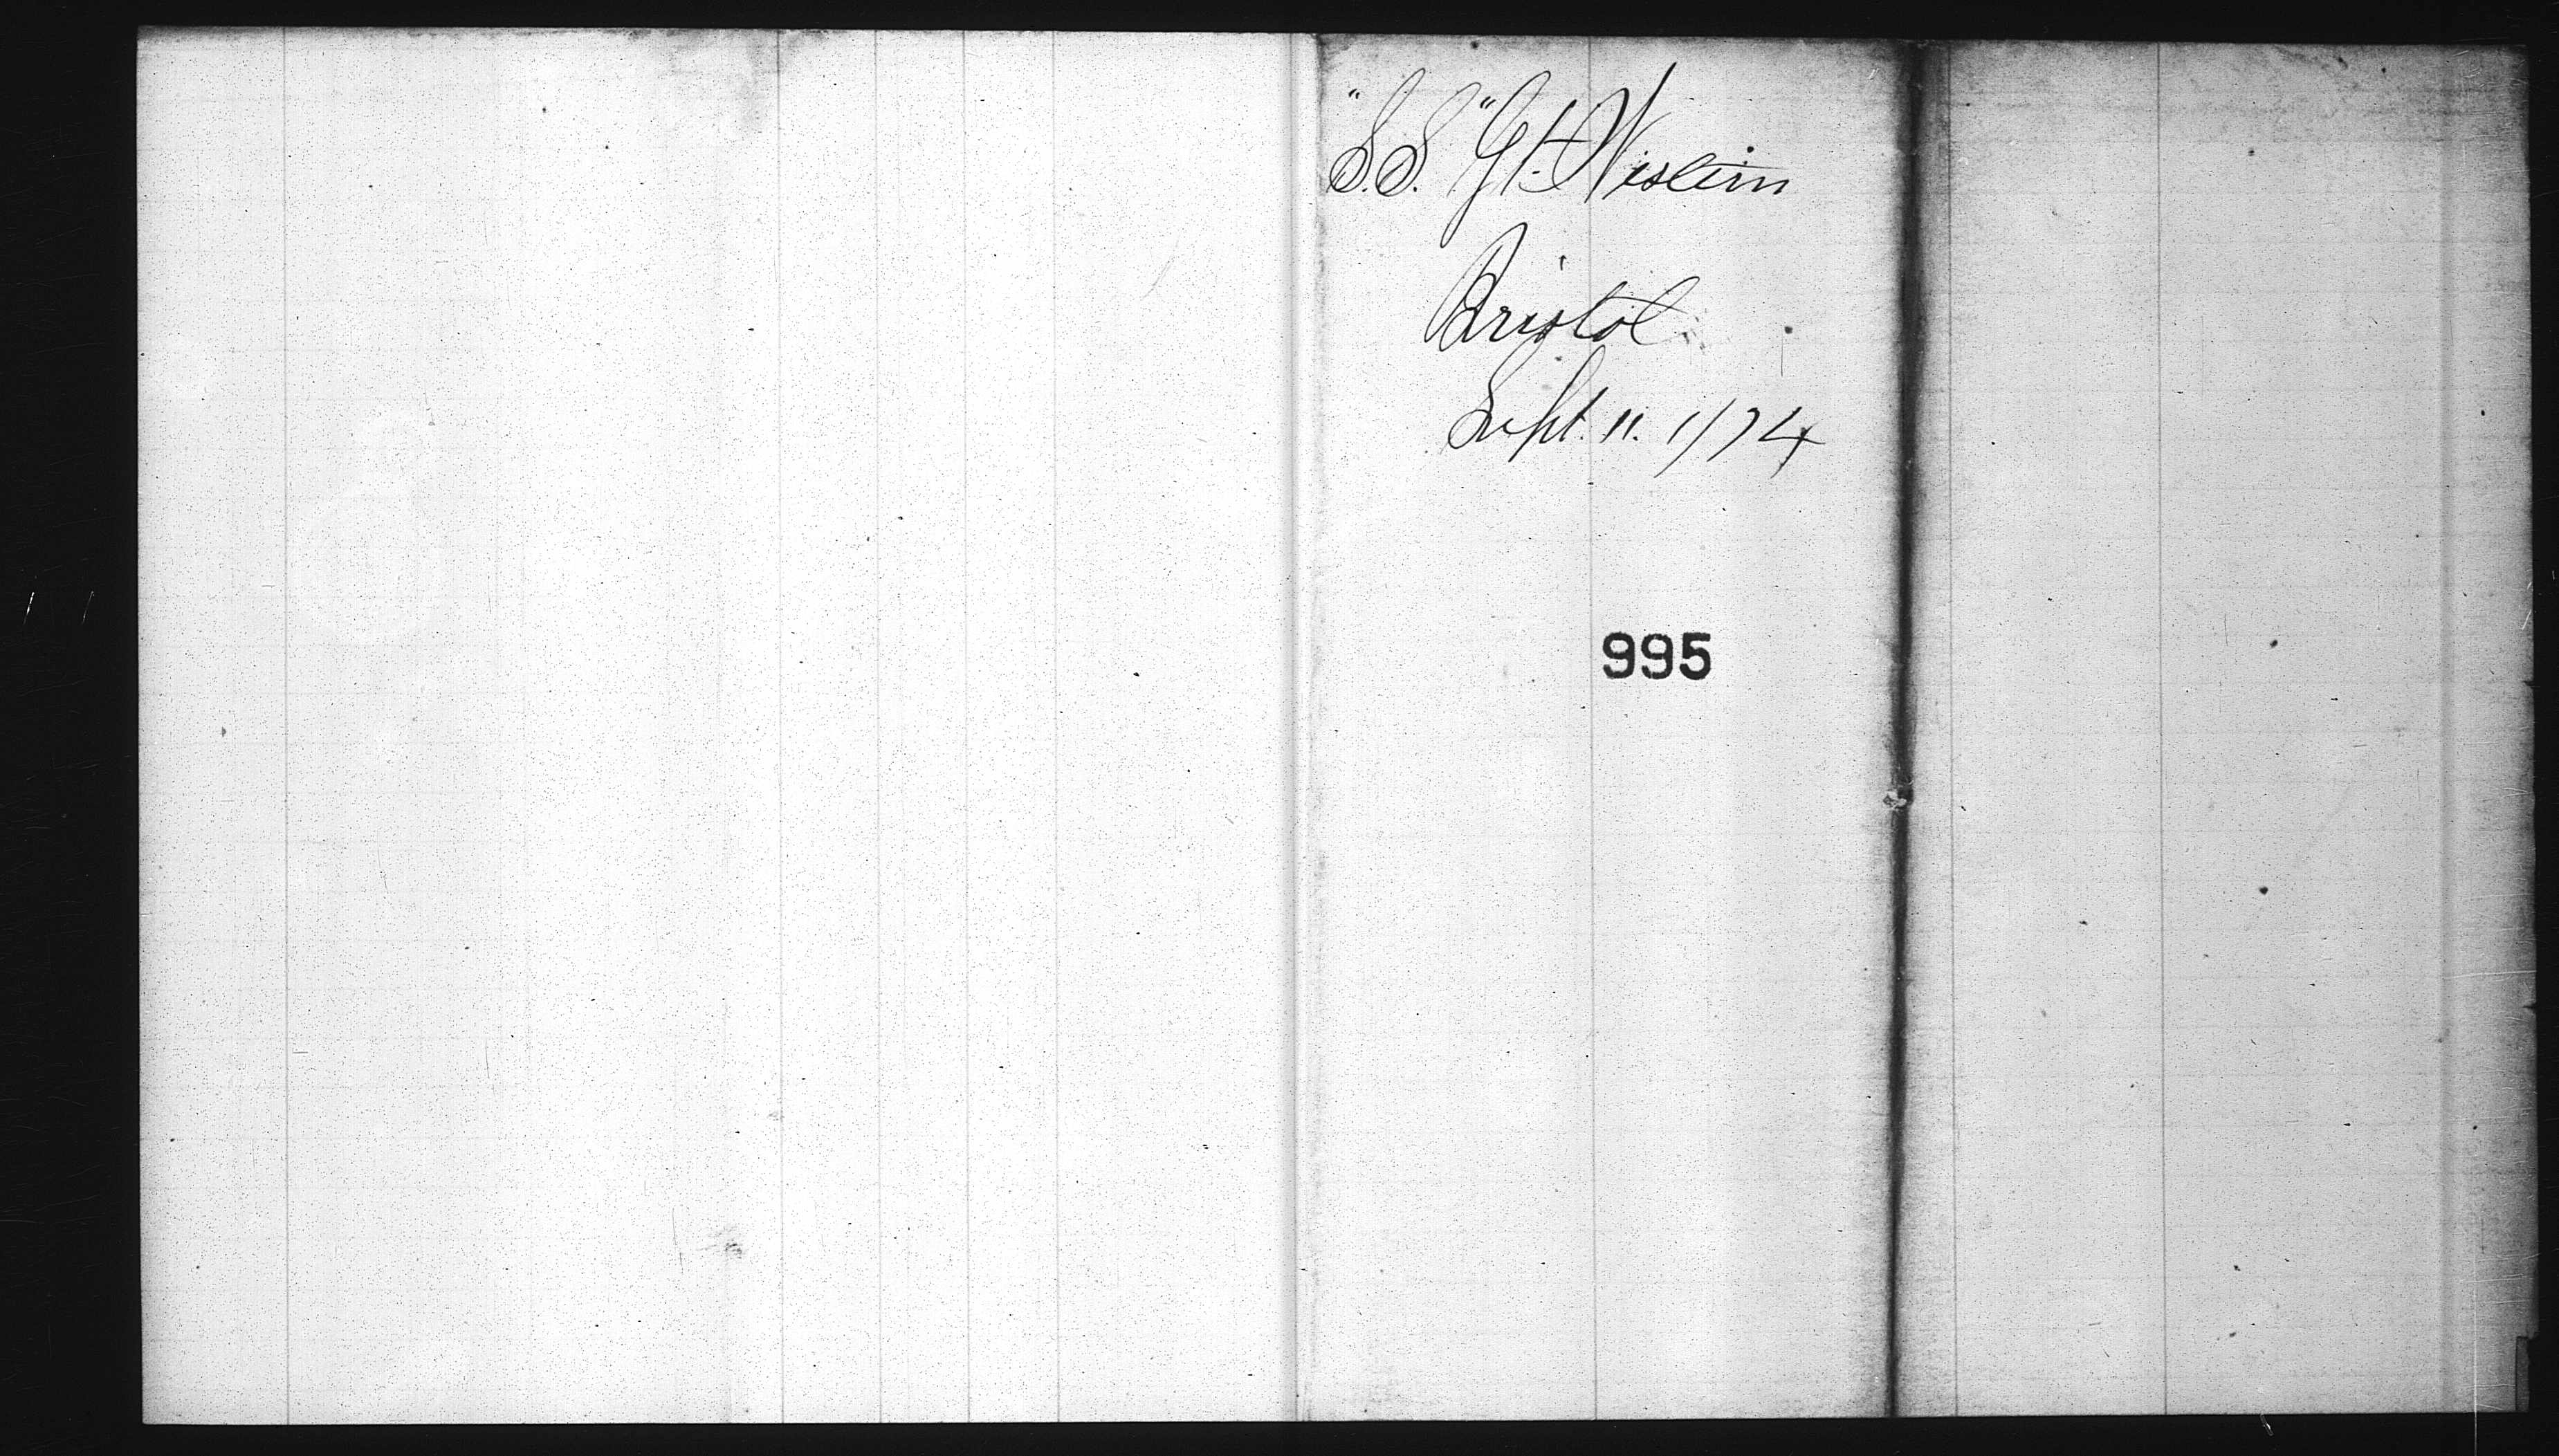 "S.S." Gt. Western
Bristol
Sept. 11. 1/74
995